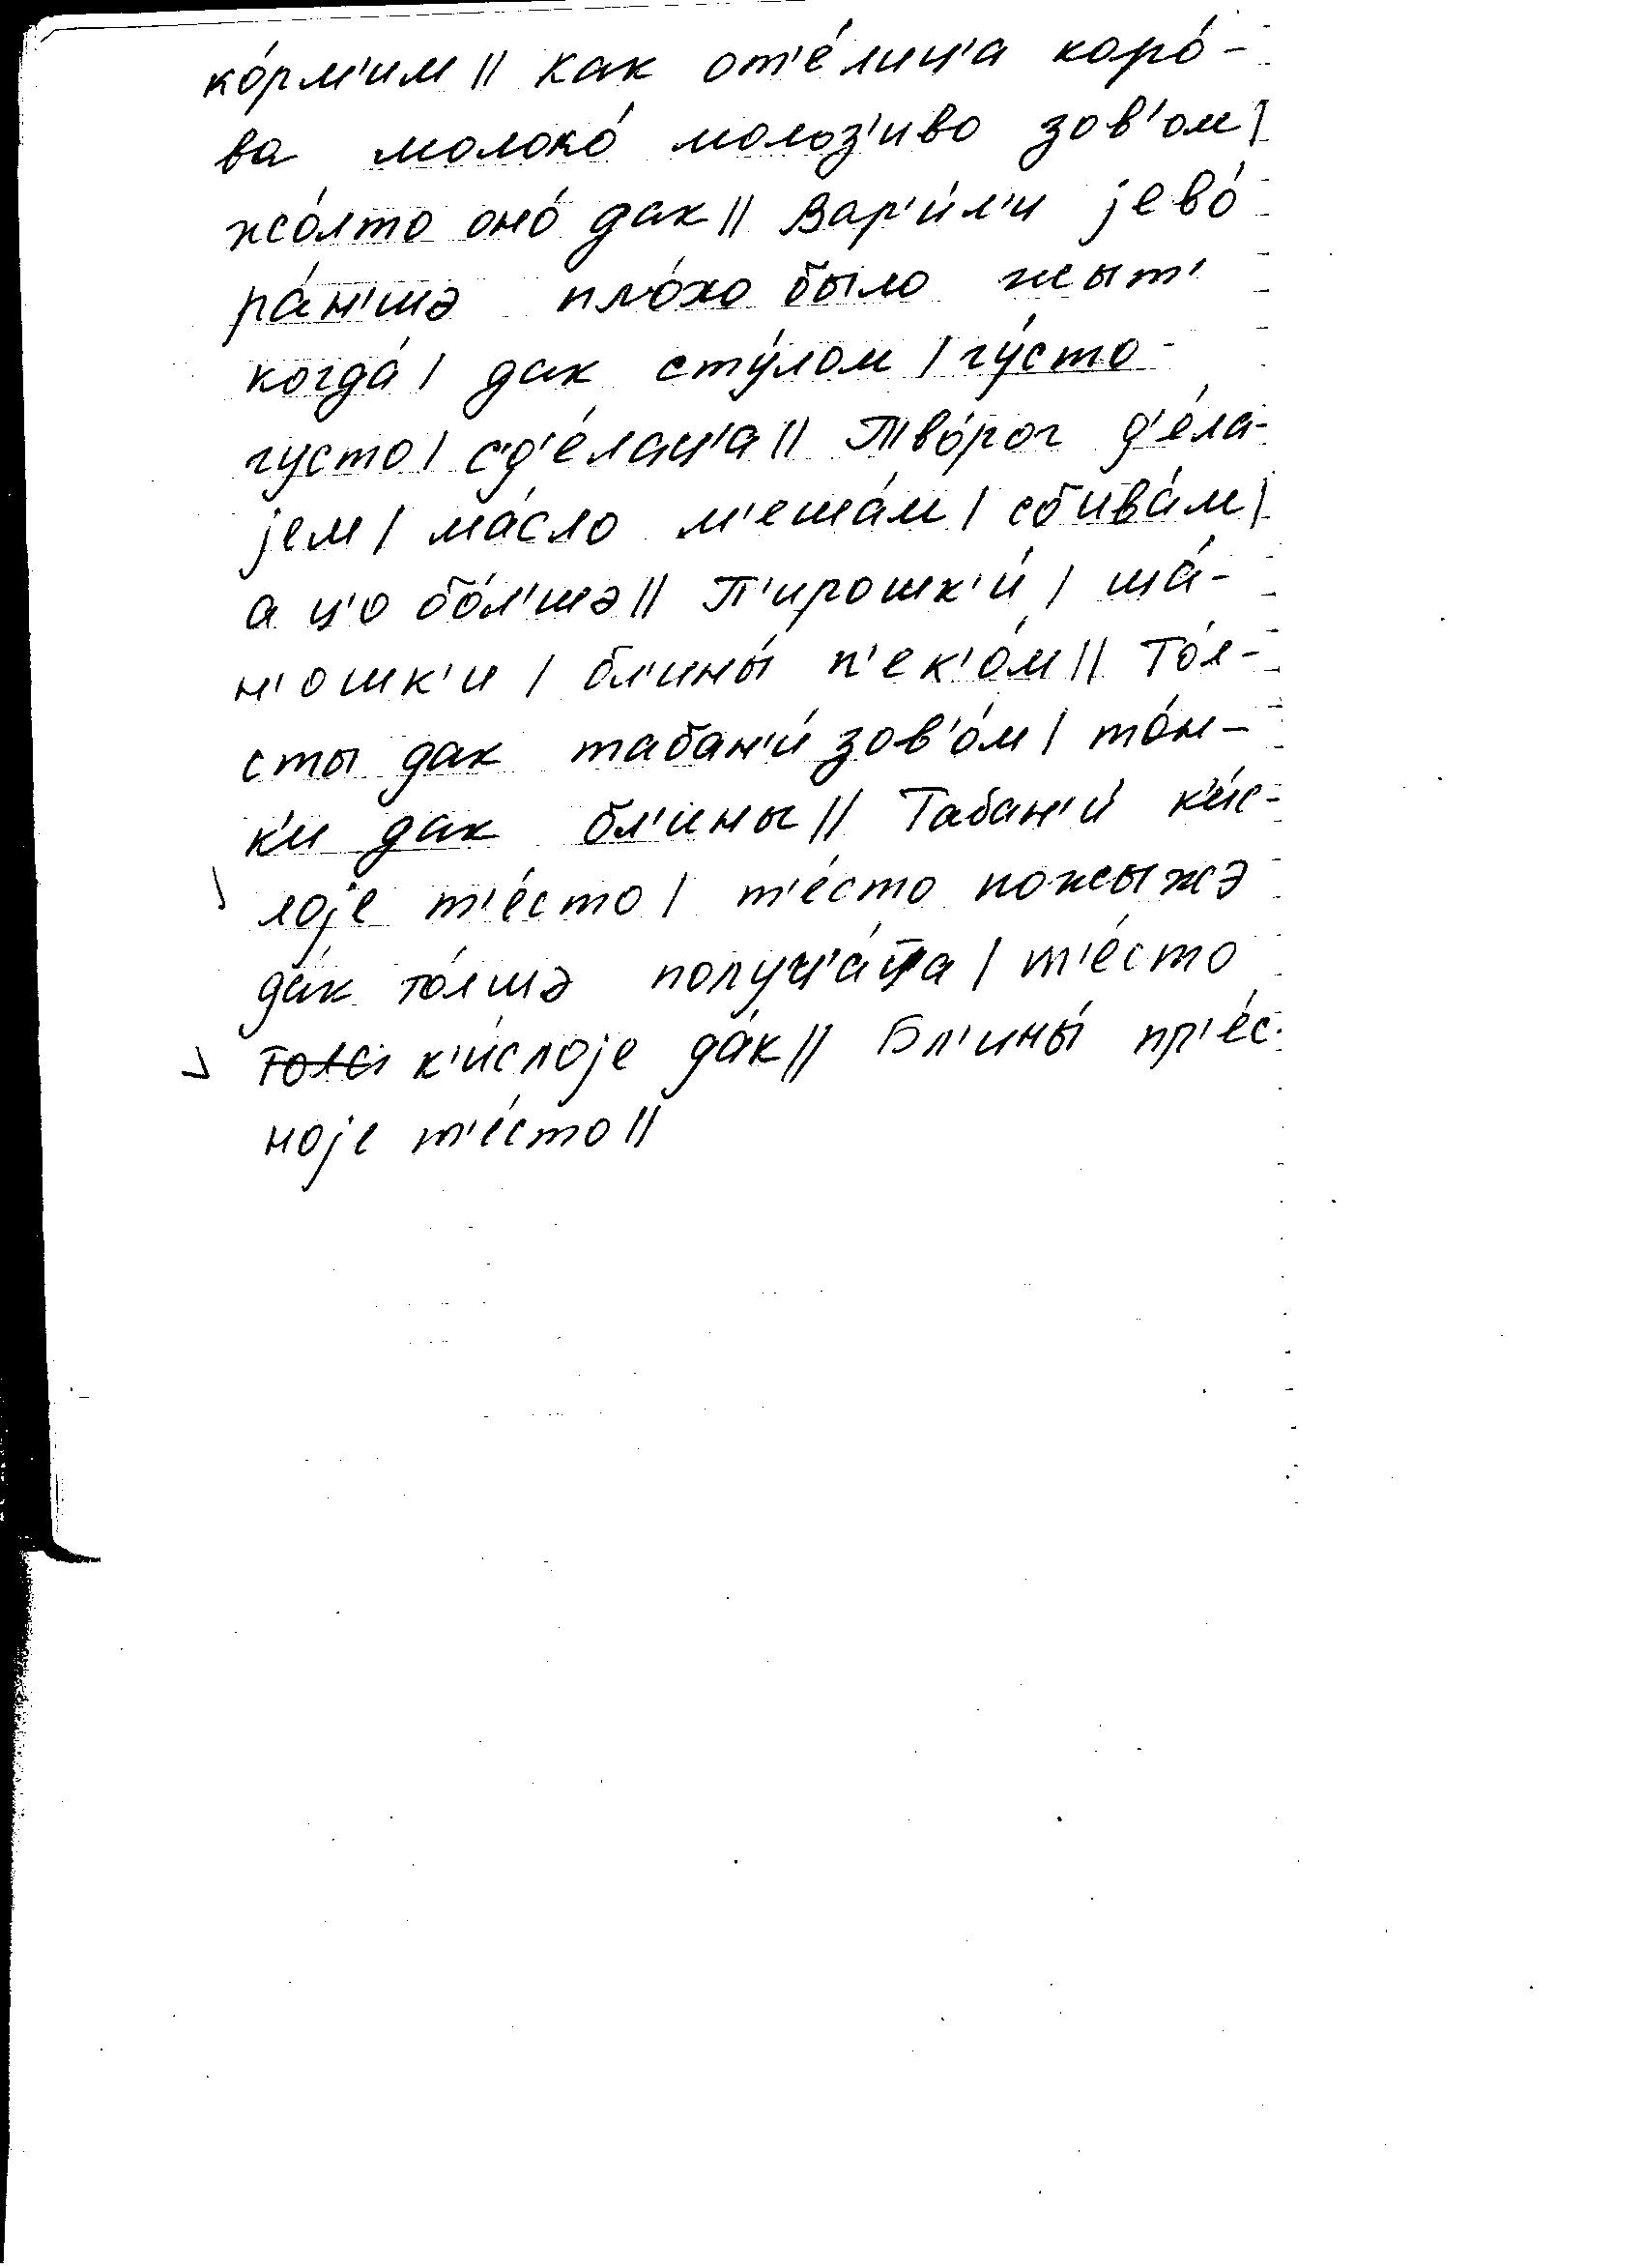 ко́рм'им || Как от'е́лиц'а коро́-
ва молоко́ молоз'иво зов'ом |
жо́лто оно́ дак || Вар'и́л'и jево́
ра́н'шə пло́хо было жыт'
когда́ | дак сту́лом | гу́сто-
густо | с'д'е́лац'а || Тво́рог д'е́ла-
jем | ма́сло м'еша́м | сбива́м |
а ц'о бо́л'шə || П'ирошк'и́ | ша́-
н'ошк'и | бл'ины́ п'ек'о́м || То́л-
сты дак табан'и́ зов'о́м | то́н-
к'и дак бл'ины || Табан'и́ к'и́с-
лоjе т'е́сто | т'е́сто пожыжə
да́к то́лшə получ'а́цца | т'е́сто
к'и́слоjе да́к || Бл'ины́ пр'е́с-
ноjе т'е́сто ||